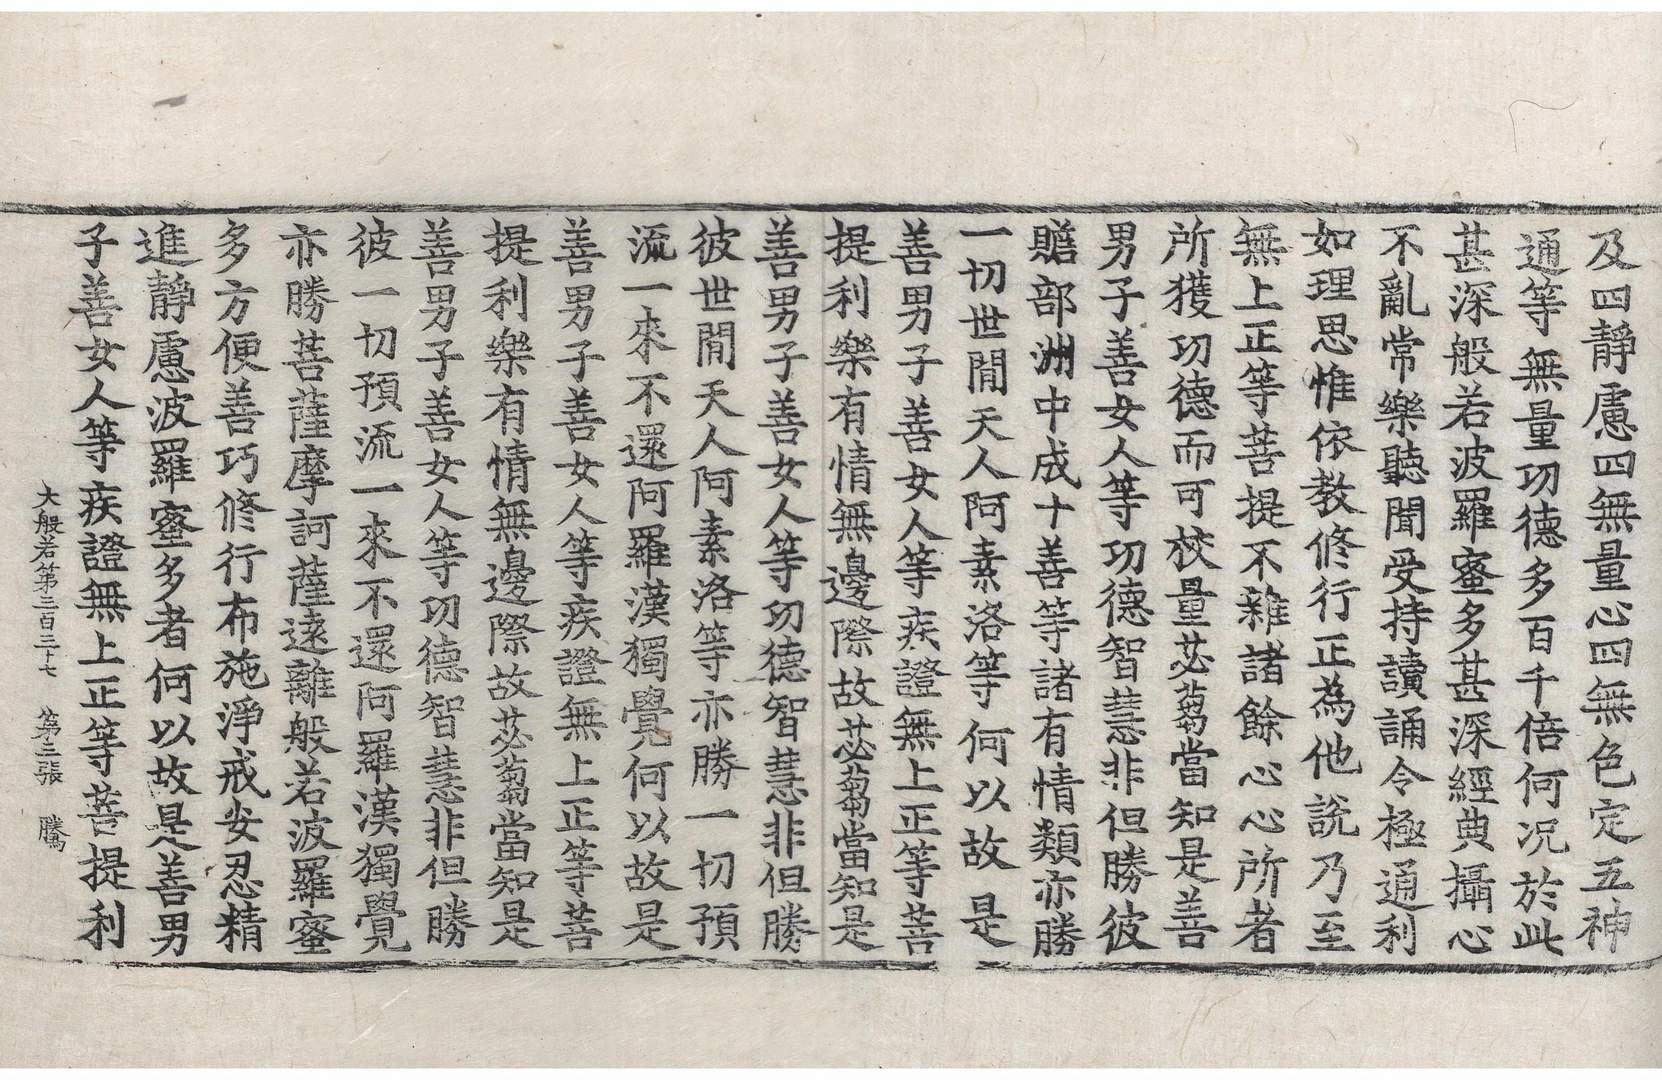 及四靜慮四無量心四無色定五神
通等無量功德多百千倍何况於此
甚深般若波羅蜜多甚深經典攝心
不亂常樂聽聞受持讀誦令極通利
如理思惟依教修行正為他說乃至
無上正等菩提不雜諸餘心心所者
所獲功德而可校量苾蒭當知是善
男子善女人等功德智慧非但勝彼
贍部洲中成十善等諸有情類亦勝
一切世閒天人阿素洛等何以故是
善男子善女人等疾證無上正等菩
提利樂有情無邊際故苾蒭當知是
善男子善女人等功德智慧非但勝
彼世閒天人阿素洛等亦勝一切預
流一來不還阿羅漢獨覺何以故是
善男子善女人等疾證無上正等菩
提利樂有情無邊際故苾蒭當知是
善男子善女人等功德智慧非但勝
彼一切預流一來不還阿羅漢獨覺
亦勝菩薩摩訶薩遠離般若波羅蜜
多方便善巧修行布施淨戒安忍精
進靜慮波羅蜜多者何以故是善男
子善女人等疾證無上正等菩提利
大般若第三百三十七 第二張 騰